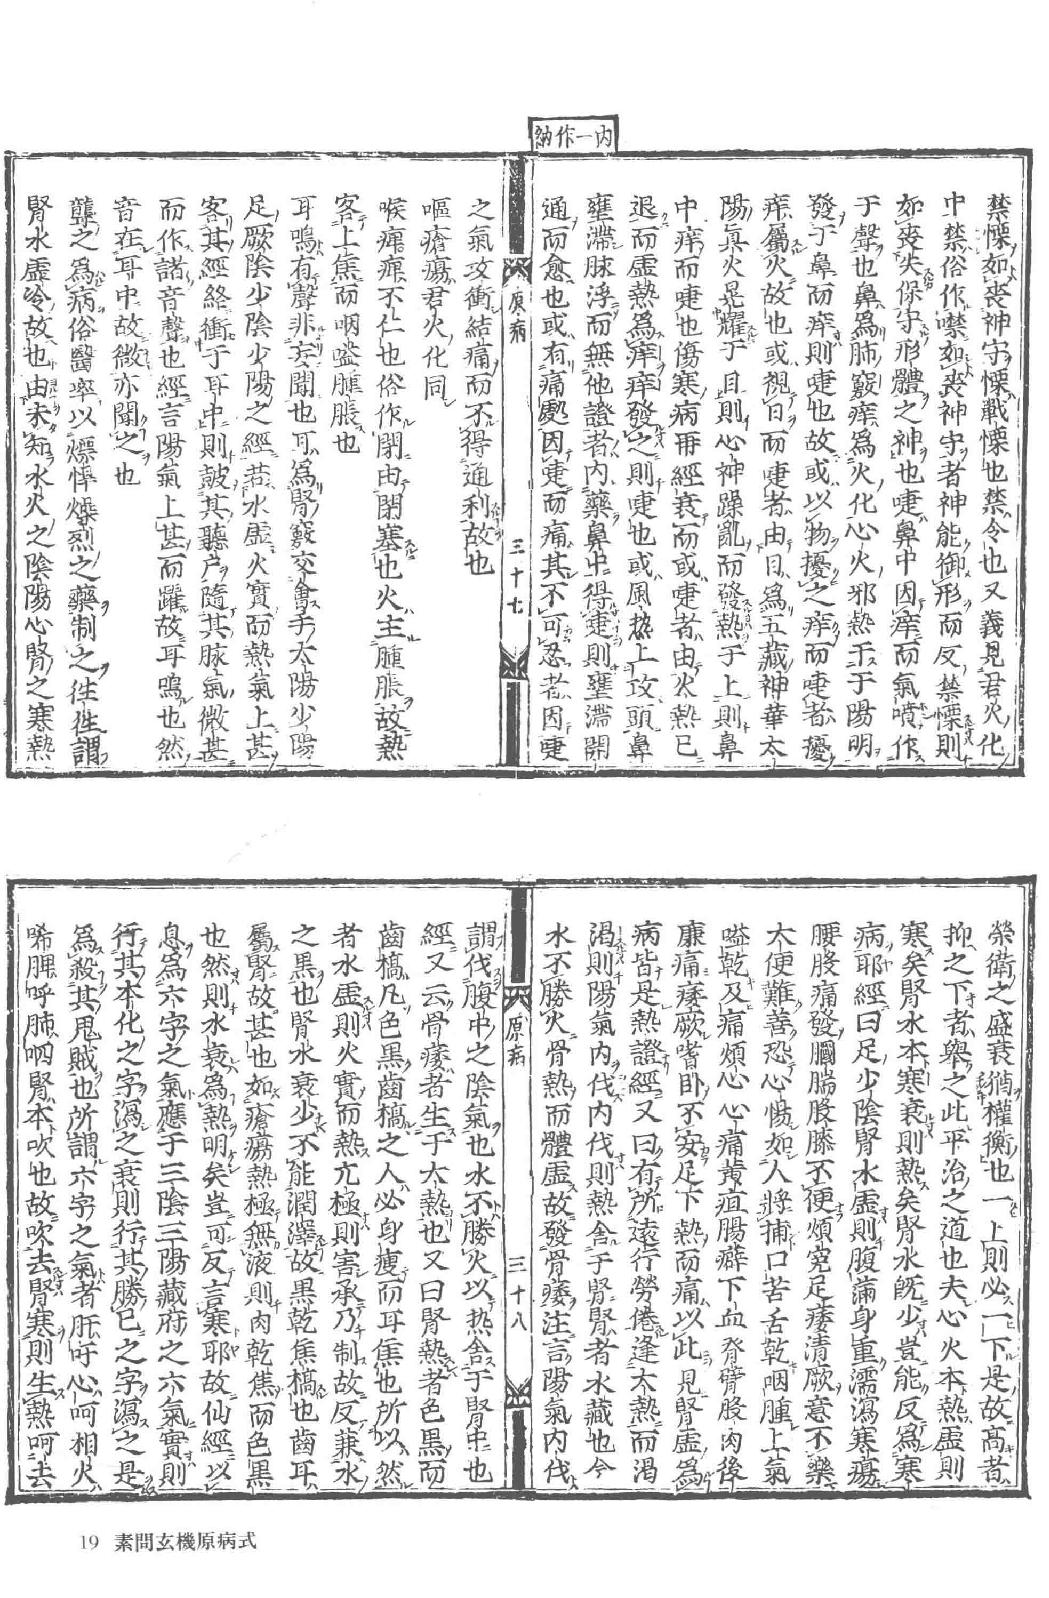 内一作納
禁慄如喪神守慄戰慄也禁令也又義見君火化
中禁俗作噤如喪神守者神能御形而反禁慄則
如喪失保守形體之神也嚏鼻中因痒而氣噴作
于聲也鼻爲肺竅痒爲火化心火邪熱干于陽明
發于鼻而痒則嚏也故或以物擾之痒而嚏者擾
痒屬火故也或視日而嚏者由目爲五藏神華太
陽眞火晃耀于目則心神躁亂而發熱于上則鼻
中痒而嚏也傷寒病再經衰而或嚏者由火熱已
退而虛熱爲痒痒發之則嚏也或風热上攻頭鼻
壅滯脉浮而無他證者内藥鼻中得嚏則壅滯開
通而愈也或有痛處因嚏而痛甚不可忍者因嚏
原病 三十七
之氣攻衝結痛而不得通利故也
嘔瘡瘍君火化同
喉痺痺不仁也俗作閉由閉塞也火主腫脹故熱
客上焦而咽嗌腫脹也
耳鳴有聲非妄聞也耳爲腎竅交會手太陽少陽
足厥陰少陰少陽之經若水虛火實而熱氣上甚
客其經絡衝于耳中則鼓其聽户隨其脉氣微甚
而作諸音聲也經言陽氣上甚而躍故耳鳴也然
音在耳中故微亦聞之也
聾之爲病俗醫率以慓悍燥烈之藥制之往往謂
腎水虛冷故也由未知水火之陰陽心腎之寒熱
榮衛之盛衰猶權衡也一上則必一下是故高者
抑之下者舉之此平治之道也夫心火本熱虛則
寒矣腎水本寒衰則熱矣腎水既少豈能反爲寒
病耶經曰足少陰腎水虛則腹滿身重濡瀉寒瘍
腰股痛發膕腨股膝不便煩寃足痿清厥意不樂
大便難善恐心惕如人將捕口苦舌乾咽腫上氣
嗌乾及痛煩心心痛黄疸腸癖下血脊臂股肉後
廉痛痿厥嗜卧不安足下熱而痛以此見腎虛爲
病皆是熱證經又曰有所遠行勞倦逢大熱而渴
渴則陽氣内伐内伐則熱舍于腎腎者水藏也今
水不勝火骨熱而體虛故發骨痿注言陽氣内伐
原病 三十八
謂伐腹中之陰氣也水不勝火以热舍于腎中也
經又云骨痿者生于大熱也又曰腎熱者色黑而
齒槁凡色黑齒槁之人必身瘦而耳焦也所以然
者水虛則火實而熱亢極則害承乃制故反兼水
之黑也腎水衰少不能潤澤故黑乾焦槁也齒耳
屬腎故甚也如瘡瘍熱極無液則肉乾焦而色黑
也然則水衰爲熱明矣豈可反言寒耶故仙經以
息爲六字之氣應于三陰三陽藏府之六氣實則
行其本化之字瀉之衰則行其勝己之字瀉之是
爲殺其鬼賊也所謂六字之氣者肝吁心呵相火
唏脾呼肺呬腎本吹也故吹去腎寒則生熱呵去
19 素問玄機原病式